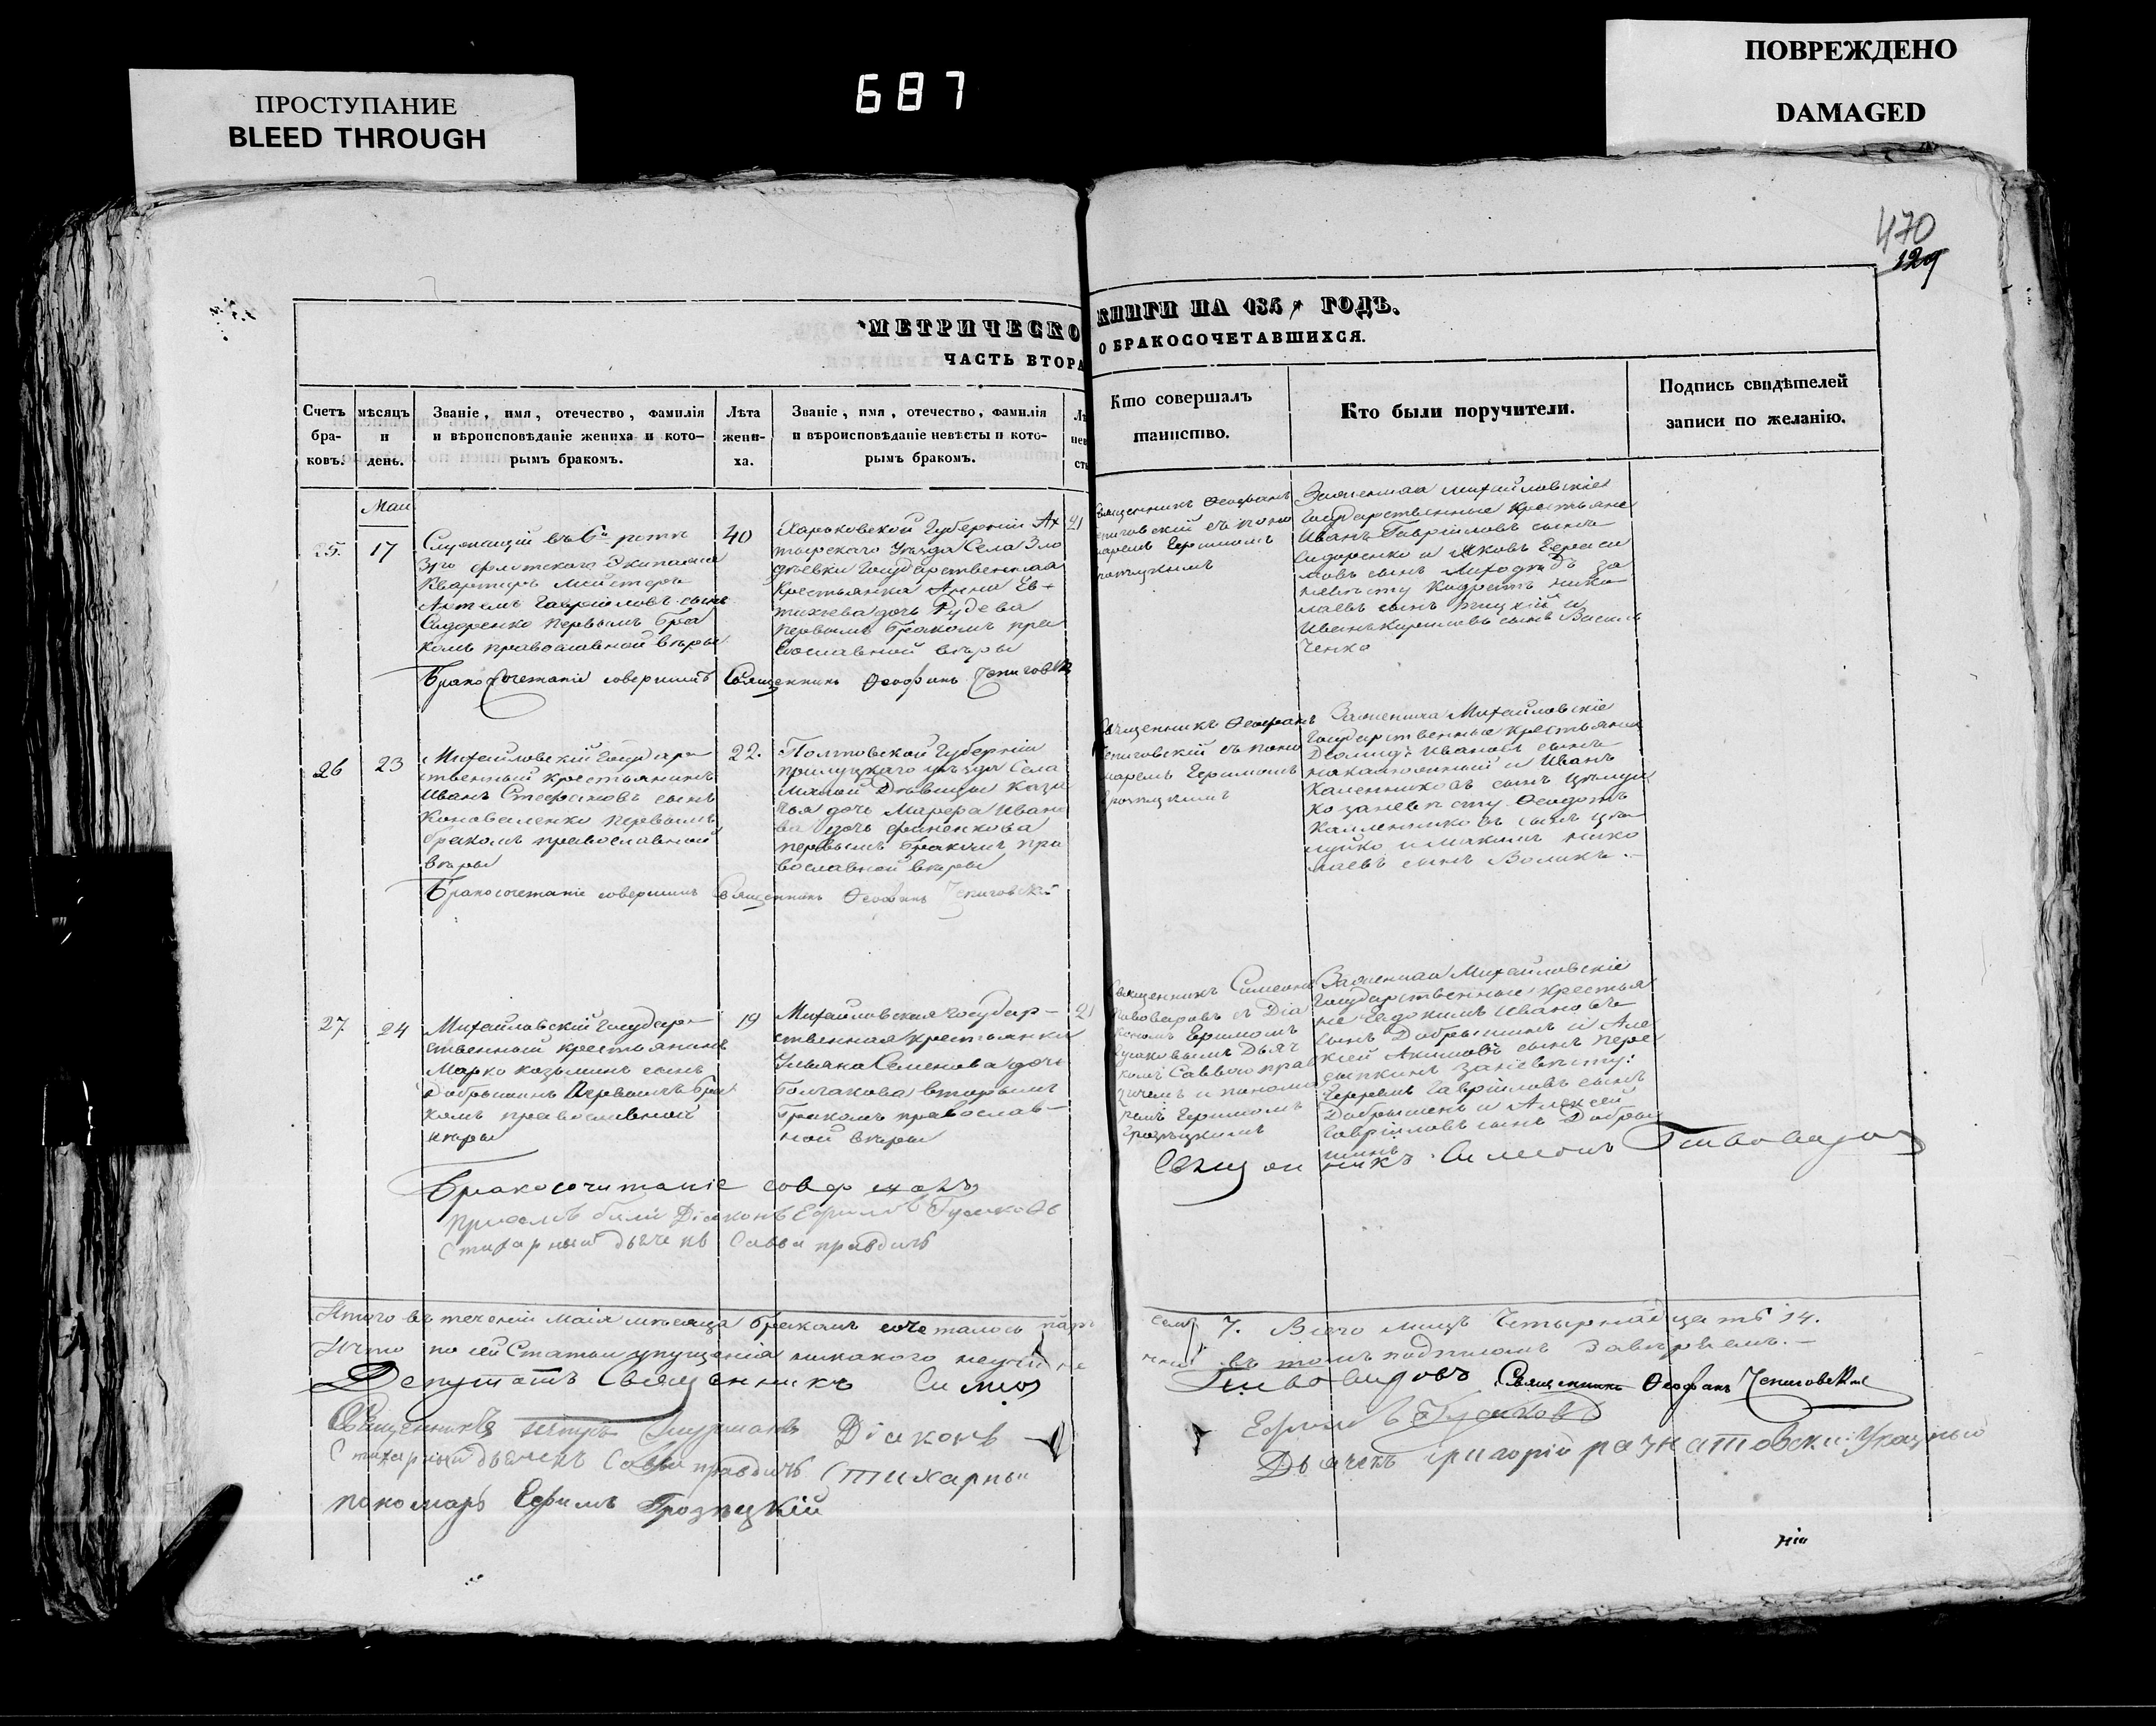 ПРОСТУПАНИЕ
BLEED THROUGH
687
ПОВРЕЖДЕНО
DAMAGED
470
129
МЕТРИЧЕСКО
ЧАСТЬ ВТОРА
Счетъ бра-ковъ.
мѣсяцъ и день.
Званіе, имя, отечество, фамилія
и вѣроисповѣданіе жениха и кото-
рымъ бракомъ.
Лѣта жени-ха.
Званіе, имя, отечество, фамилія
и вѣроисповѣданіе невѣсты и кото-
рымъ бракомъ.
КНИГИ НА 185 ГОДЪ.
О БРАКОСОЧЕТАВШИХСЯ.
Кто совершалъ
таинство.
Кто были поручители.
Подпись свидѣтелей
записи по желанію.
Маи
25.
17
Служащій въ 6й ротѣ
флотского Экипажа
Квартиръ Мейстеръ
Артемъ Гавріиловъ сынъ
Сидоренко первымъ бра
комъ православной вѣры
40
Харьковской Губерніи Ах
тырского Уѣзда Села Зло
дѣевки Государственная
Крестьянка Анна Ев
тихіева дочь Рудева
первымъ бракомъ пра
вославной вѣры
21
Священникъ Ѳеофанъ
съ поно
маремъ Ефимомъ
За жениха Михайловскіе
Государственные Крестьяне
Иванъ Гавріиловъ сынъ
Сидоренко и Яковъ Гераси
мовъ сынъ Лиходѣдъ за
невѣсту Кодратъ Нико
лаевъ сынъ
Иванъ Кириловъ сынъ Василь
ченко
Бракосочетаніе совершилъ Священникъ Ѳеофанъ
26
23
Михайловскій Государ
ственный крестьянинъ
Иванъ Стефановъ сынъ
Коноваленко первымъ
бракомъ православной
вѣры
22.
Полтовской Губерніи
прилуцкаго уѣзда Села
Малой Дѣвицы Каза
чья дочь Марфа Ивано
ва дочь
первымъ бракомъ пра
вославной вѣры
Священникъ Ѳеофанъ
съ поно
маремъ Ефимомъ
За жениха Михайловскіе
Государственные Крестьяне
Иванов сынъ
и Иванъ
Калениковъ сынъ
ко за невѣсту Ѳеодотъ
Калениковъ сынъ
и Макимъ Нико
лаевъ сынъ Воликъ.
Бракосочетаніе совершилъ Священникъ Ѳеофанъ
27
24
Михайловскій Государ
ственный крестьянинъ
Марко Козьминъ сынъ
Добрышинъ Первымъ бра
комъ православной
вѣры
19
Михайловская Государ-
ственная крестьянка
Ульяна Семенова дочь
Толчакова вторымъ
бракомъ православ-
ной вѣры
21
Священникъ Симеонъ
Пивоваровъ съ Діа
кономъ Ефимомъ
Гусаковымъ Дьяч
комъ Саввою прав
дичемъ и понома
ремъ Ефимомъ
Грозецкимъ
За жениха Михайловскіе
Государственные крестья
не Евдокимъ Ивановъ
сынъ Добрышинъ и Але
ксей Акимовъ сынъ пере
сыпкинъ за невѣсту:
Гавріиловъ сынъ
Добрышенъ и Алексей
Гавріиловъ сынъ Добры
шинъ
Бракосочитаніе совершалъ
Священникъ Симеонъ Пивоваровъ
Присемъ были Діяконъ Ефимъ Гусаковъ
Стихарный дьячекъ Савва правдичъ
Итого въ теченіи Маія мѣсяца бракомъ сочеталось паръ
7. Всего лицъ Четырнадцать 14.
Что по сей Статьи упущенія никакого
въ томъ подписомъ Завѣряемъ.
Депутатъ Священникъ Симеон
Пивоваровъ Священникъ Ѳеофанъ
Священникъ петръ
Діаконъ
Ефимъ Гусаковъ
Стихарный дьячекъ Савва правдичъ Стихарный
Дьячекъ григорій разнатовскій Указный
пономарь Ефимъ Грозецкій